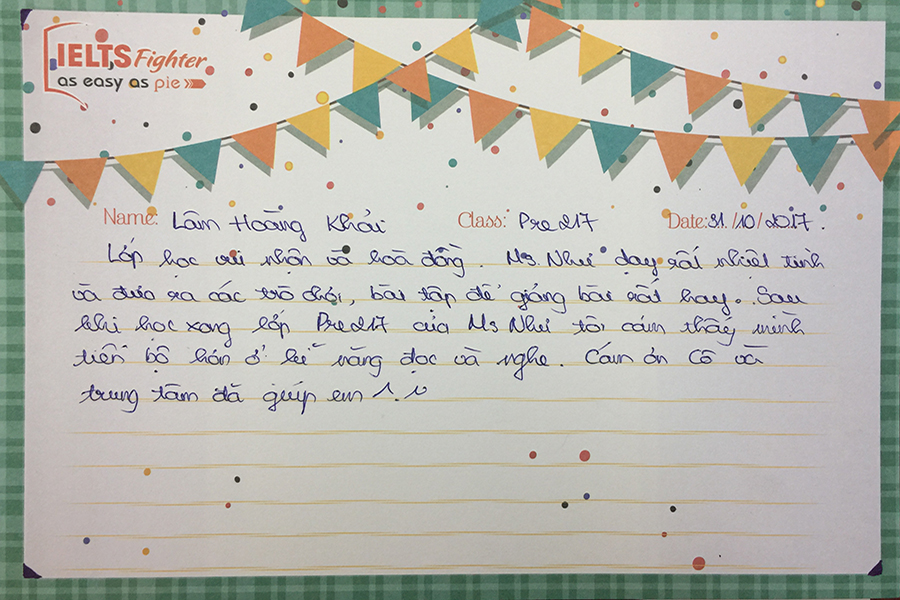 IELTS Fighter
as easy as pie
Name: Lâm Hoàng Khải Class: Pre217 Date: 31/10/2017.
Lớp học vui nhộn và hoà đồng. Ms. Như dạy rất nhiệt tình
và đưa ra các trò chơi, bài tập để giảng bài rất hay. Sau
khi học xong lớp Pre217 của Ms Như tôi cảm thấy mình
tiến bộ hơn ở kĩ năng đọc và nghe. Cám ơn Cô và
trung tâm đã giúp em